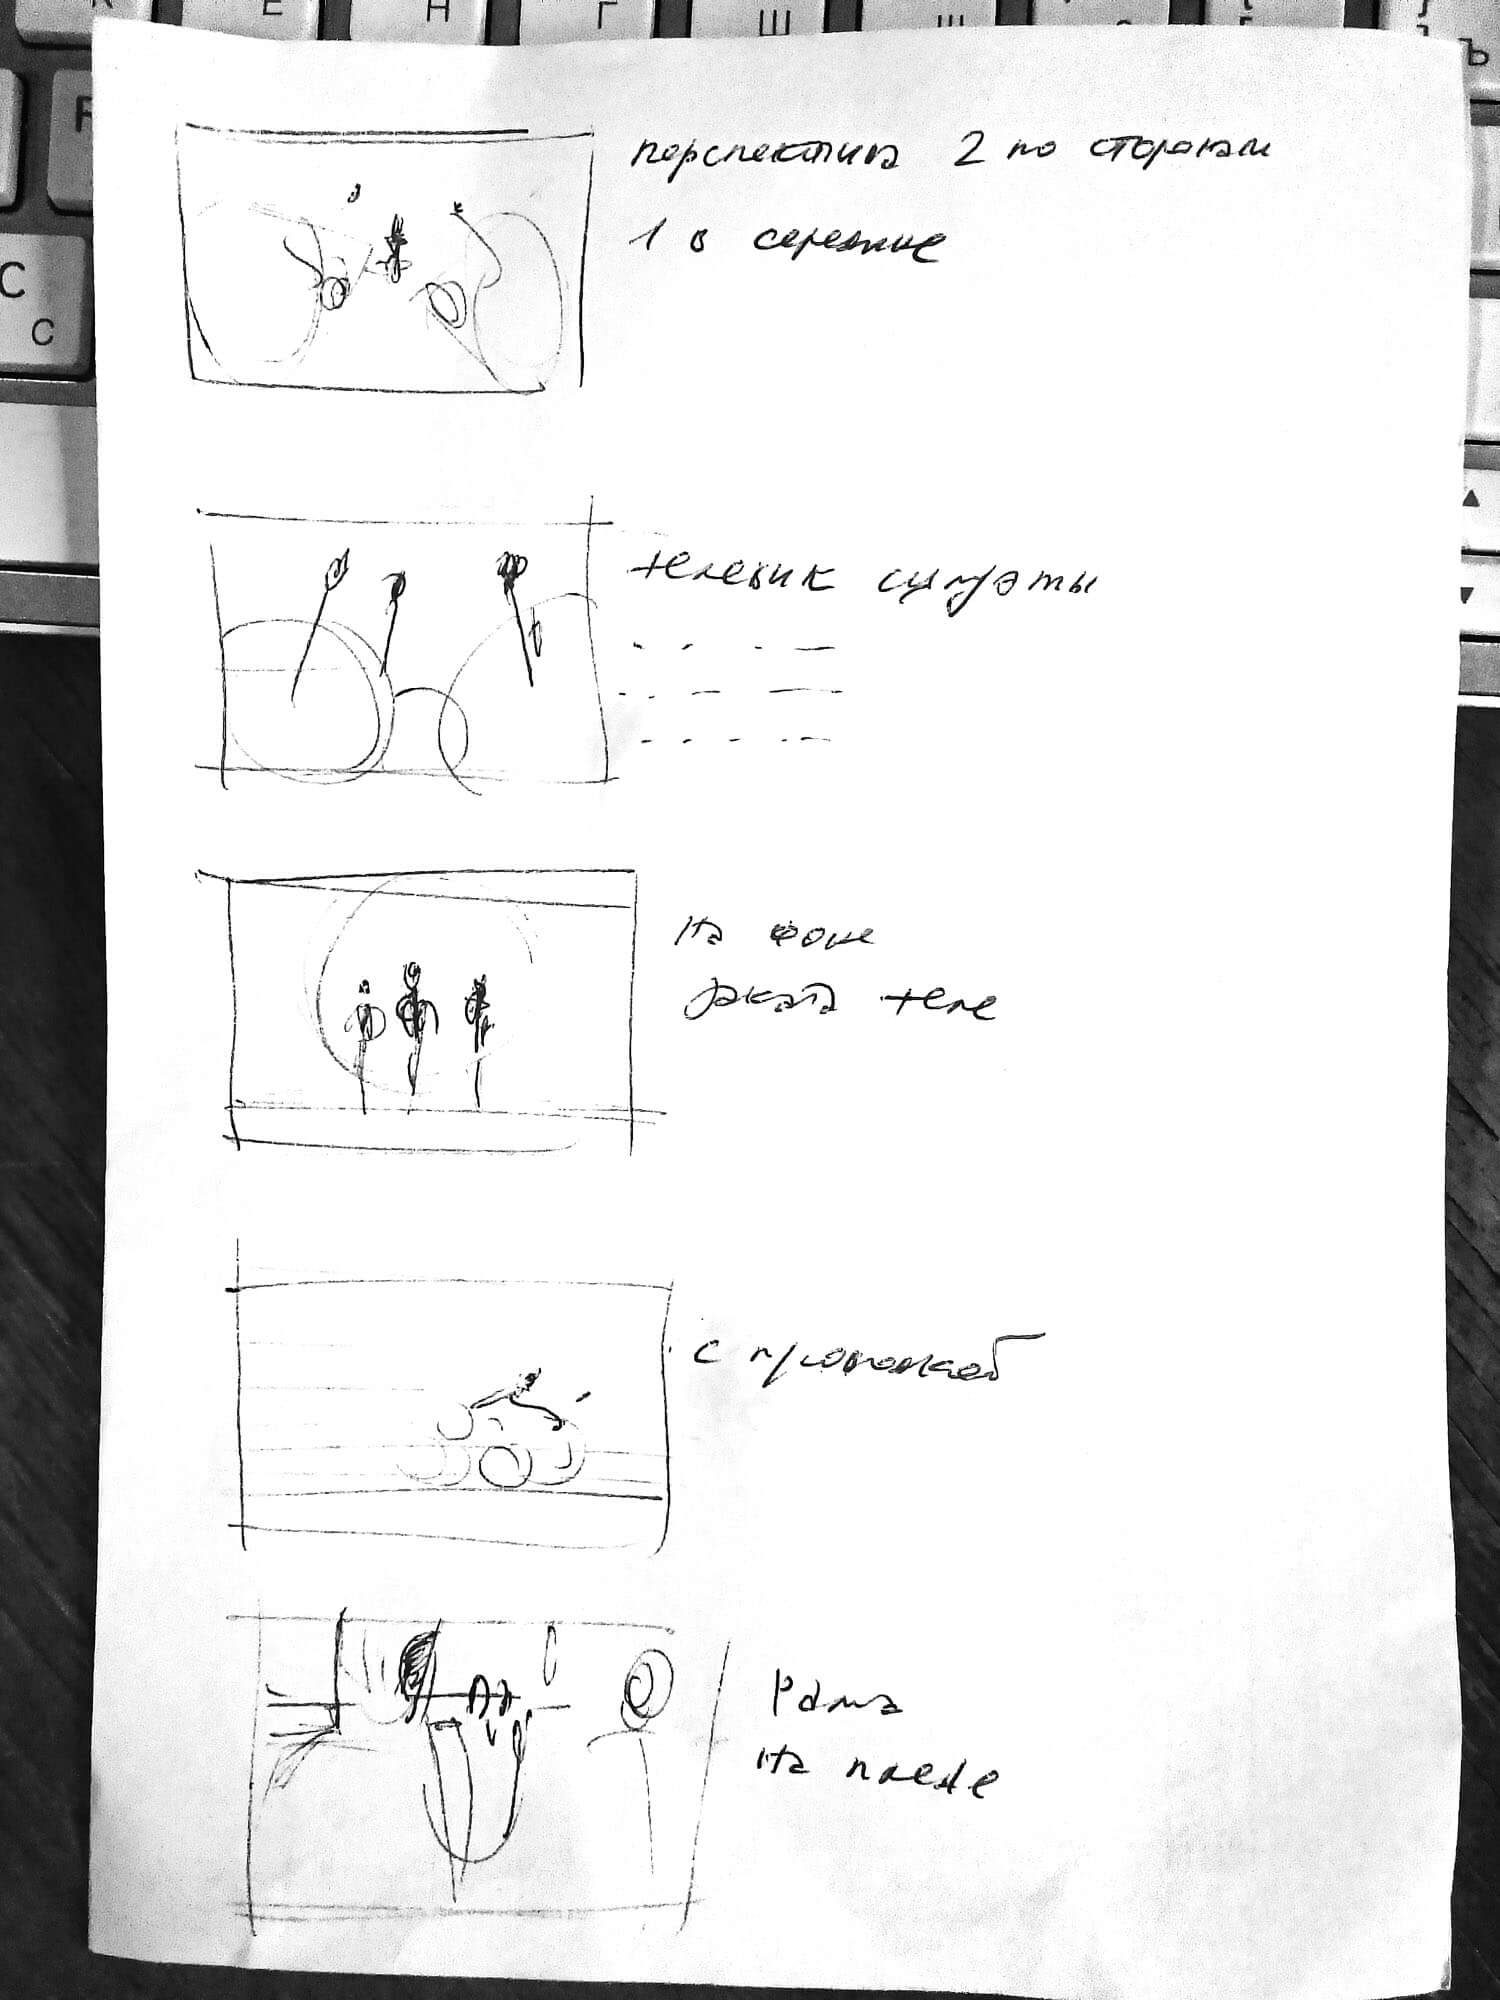 К Е Н Г Ш Щ Ъ
R
С
С
перспектива 2 по сторонам
1 в середине
телевик силуэты
на фоне
заката теле
с проводкой
Рама
на плече